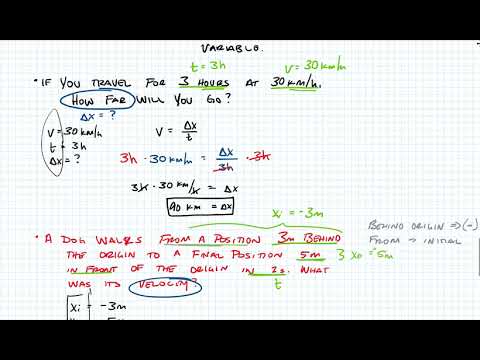 VARIABLE.
t = 3h v = 30 km/h
• IF YOU TRAVEL FOR 3 HOURS AT 30 km/h.
HOW FAR WILL YOU GO?
Δx = ?
v = 30 km/h
t = 3h
Δx = ?
v = Δx/t
3h · 30 km/h = Δx/3h · 3h
3h · 30 km/h = Δx
90 km = Δx
xi = -3m
BEHIND ORIGIN ⇒ (-)
FROM → INITIAL
• A DOG WALKS FROM A POSITION 3m BEHIND
THE ORIGIN TO A FINAL POSITION 5m
IN FRONT OF THE ORIGIN IN 2s. WHAT
t
WAS ITS VELOCITY?
xi = -3m